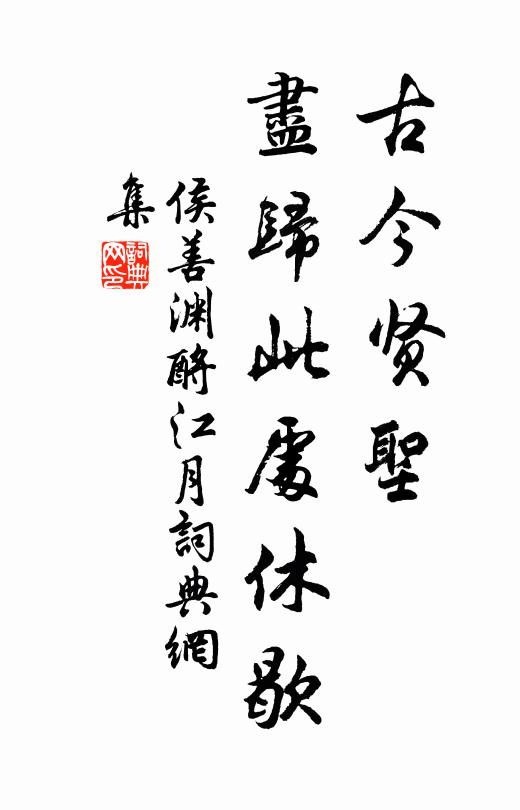 古今贤聖
盡歸此處休歇
侯善渊酹江月詞典網
集
詞典
网印